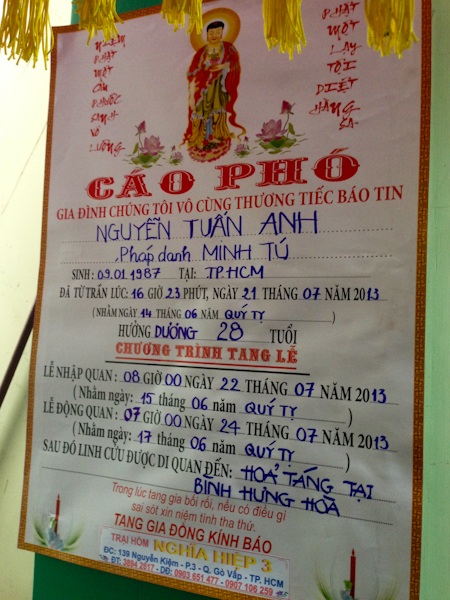 NIỆM
PHẬT
MỘT
CÂU
PHƯỚC
SANH
VÔ
LƯỢNG
PHẬT
MỘT
LẠY
TỘI
DIỆT
HÀNG
SA
CÁO PHÓ
GIA ĐÌNH CHÚNG TÔI VÔ CÙNG THƯƠNG TIẾC BÁO TIN
NGUYỄN TUẤN ANH
Pháp danh MINH TÚ
SINH : 09.01.1987 TẠI: TP.HCM
ĐÃ TỪ TRẦN LÚC: 16 GIỜ 23 PHÚT, NGÀY 21 THÁNG 07 NĂM 2013
(NHẰM NGÀY 14 THÁNG 06 NĂM QUÝ TỴ)
HƯỞNG DƯƠNG 28 TUỔI
CHƯƠNG TRÌNH TANG LỄ
LỄ NHẬP QUAN : 08 GIỜ 00 NGÀY 22 THÁNG 07 NĂM 2013
(Nhằm ngày: 15 tháng 06 năm QUÝ TỴ)
LỄ ĐỘNG QUAN : 07 GIỜ 00 NGÀY 24 THÁNG 07 NĂM 2013
(Nhằm ngày: 17 tháng 06 năm QUÝ TỴ)
SAU ĐÓ LINH CỬU ĐƯỢC DI QUAN ĐẾN: HOẢ TÁNG TẠI
BÌNH HƯNG HÒA
Trong lúc tang gia bối rối, nếu có điều gì
sai sót xin niệm tình tha thứ.
TANG GIA ĐỒNG KÍNH BÁO
TRẠI HÒM NGHĨA HIỆP 3
ĐC: 139 Nguyễn Kiệm - P.3 - Q. Gò Vấp - TP. HCM
ĐT: 3894 2617 - DĐ: 0903 651 477 - 0907 106 259